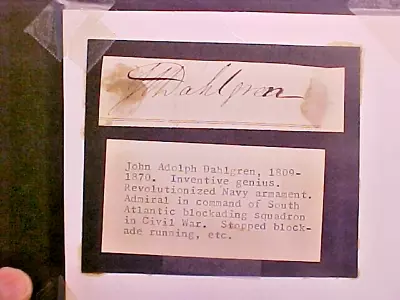 Dahlgren
John Adolph Dahlgren, 1809-
1870. Inventive genius.
Revolutionized Navy armament.
Admiral in command of South
Atlantic blockading squadron
in Civil War. Stopped block-
ade running, etc.